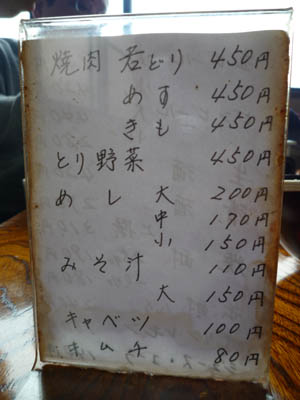 焼肉 若どり 450円
めす 450円
きも 450円
とり野菜 450円
めし 大 200円
中 170円
小 150円
みそ汁 110円
大 150円
キャベツ 100円
キムチ 80円